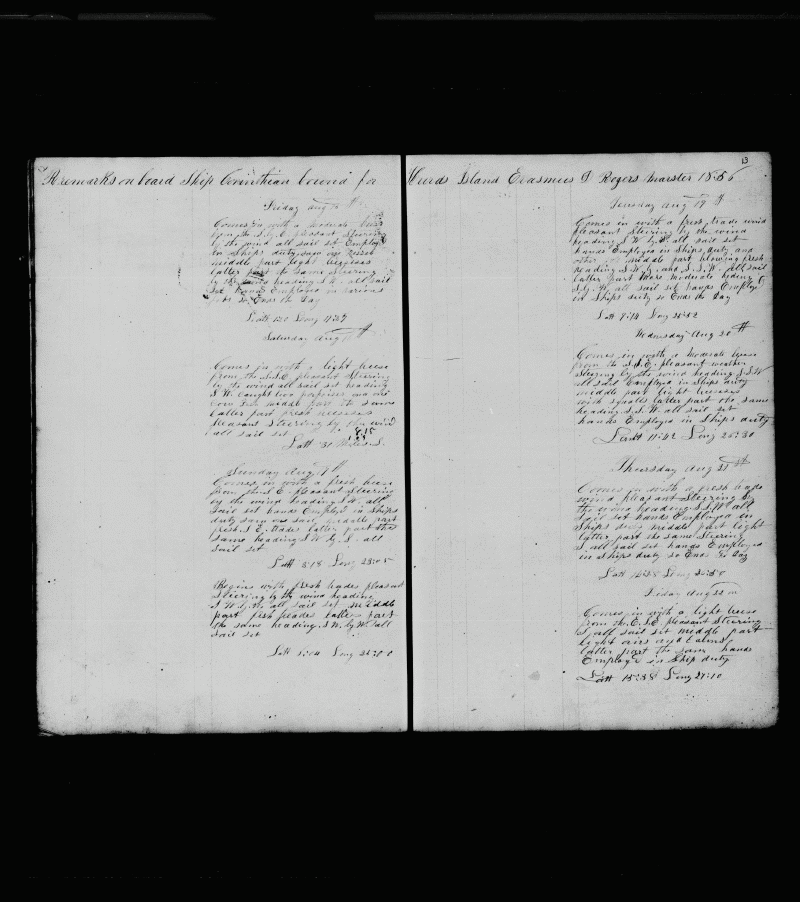 Remarks on board Ship Corinthian bound for
Friday Aug 15th
Comes in with a moderate breeze
from the S.E. pleasant Steering
by the wind all sail set Employed
in Ships duty saw one
middle part light breezes
latter part the same Steering
by the wind heading S.W. all sail
set hands Employed in various
jobs so Ends the Day
Saturday Aug 16th
Comes in with a light breeze
from the S.S.E. pleasant Steering
by the wind all sail set heading
S.W. caught two porpoises
middle part the same
latter part fresh breezes
pleasant Steering by the wind
all sail set
Latt
Sunday Aug 17th
Comes in with a fresh breeze
from the S.E. pleasant Steering
by the wind heading S.W. all
sail set hands Employed in Ships
duty saw one sail middle part
fresh S.E. trades latter part the
same heading S.W. by S. all
sail set
Latt 5:18 Long 23:05
Begins with fresh trades pleasant
Steering by the wind heading
S.W. by W. all sail set middle
part fresh trades latter part
the same heading S.W. by W. all
sail set
Long 26:00
13
Hurds Island Erasmus D Rogers Marster 1856
Tuesday Aug 19th
Comes in with a fresh trade wind
pleasant Steering by the wind
heading S.W. by S. all sail set
hands Employed in Ships duty and
other jobs middle part blowing fresh
heading S.W. by S. and S.S.W. all sail
latter part more moderate heading
all sail set hands Employed
in Ships duty so Ends the Day
Latt 9:14 Long 26:52
Wednesday Aug 20th
Comes in with a moderate breeze
from the S.E. pleasant weather
Steering by the wind heading S.S.W
all sail Employed in Ships duty
middle part light breezes
with squalls latter part the same
heading S.S.W. all sail set
hands Employed in Ships duty
Latt 11:42 Long 26:30
Thursday Aug 21st
Comes in with a fresh trade
wind pleasant Steering by
the wind heading S.S.W. all
sail set hands Employed in
Ships duty middle part light
latter part the same Steering
S. all sail set hands Employed
in Ships duty so Ends the Day
Friday Aug 22
Comes in with a light breeze
from the E.S.E. pleasant Steering
S. all sail set middle part
light airs and calms
latter part the same hands
Employed in Ship duty
Latt 15:38 Long 27:10